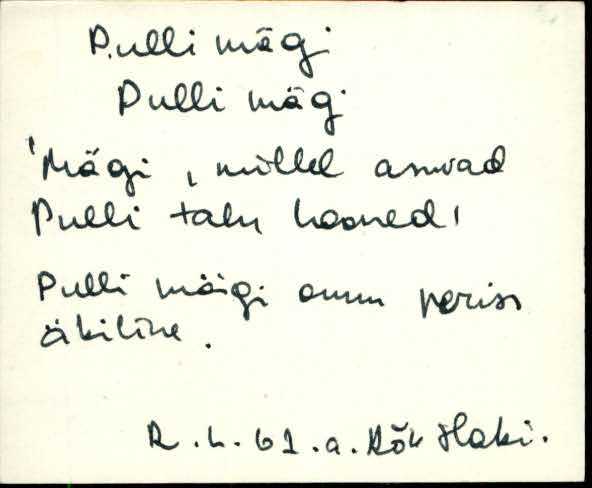 Pulli mägi
Pulli mägi
'Mägi, millel asuvad
Pulli talu hooned'
Pulli mäigi omm periss
äkiline.
61.a.